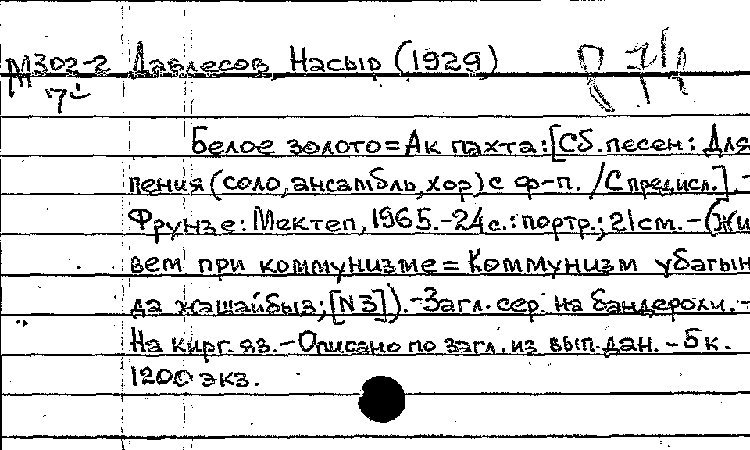 М302-2 Давлесов, Насыр (1929)
7
Белое золото=Ак пахта:[Сб.песен: Для
пения (соло, ансамбль, хор) с ф-п. /С предисл.].-
Фрунзе: Мектеп, 1965.-24с.:портр.; 21см.-(Жи
вем при коммунизме=Коммунизм убагын
да жашайбыз; [N3]).-Загл. сер. на бандероли.-
На кирг. яз.-Описано по загл. из вып. дан.-5к.
1200 экз.